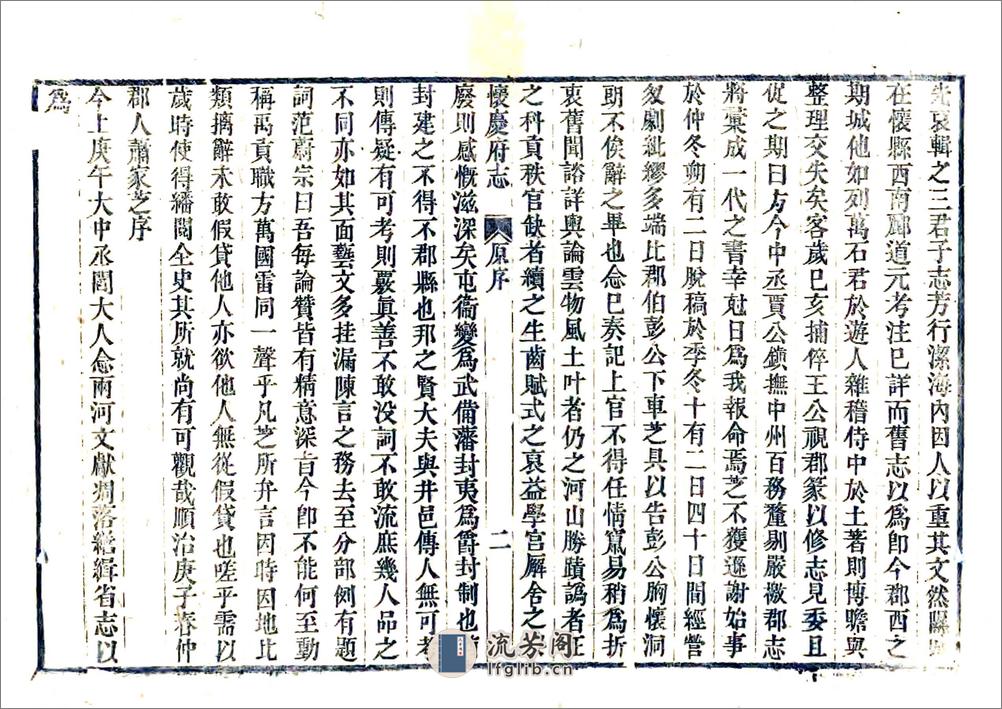 先哀輯之三君子志芳行潔海內因人以重其文然隰
在懷縣西南酈道元考注巳詳而舊志以爲卽今郡西之
期城他如列萬石君於遊人雜稽侍中於土著則博瞻與
整理交失矣客歲巳亥捕倅王公視郡篆以修志見委且
促之期曰方今中丞賈公鎮撫中州百務釐剔嚴檄郡志
將彙成一代之書幸尅日爲我報命焉芝不獲遜謝始事
於仲冬朔有二日脫稿於季冬十有二日四十日間經營
匆劇紕繆多端比郡伯彭公下車芝具以告彭公胸懷洞
朗不俟辭之畢也念巳奏記上官不得任情竄易稍爲折
衷舊聞諮詳輿論雲物風土叶者仍之河山勝蹟譌者正
之科貢秩官缺者續之生齒賦式之裒益學宮廨舍之
懷慶府志 原序 二
廢則感慨滋深矣屯衞變爲武備藩封夷爲爵封制也
封建之不得不郡縣也邦之賢大夫與井邑傳人無可考
則傳疑有可考則覈眞善不敢沒詞不敢流庶幾人品之
不同亦如其面藝文多挂漏陳言之務去至分部例有題
詞范蔚宗曰吾每論贊皆有精意深旨今卽不能何至動
稱禹貢職方萬國雷同一聲乎凡芝所弁言因時因地比
類摛辭未敢假貸他人亦欲他人無從假貸也嗟乎需以
歲時使得繙閱全史其所就尚有可觀哉順治庚子春仲
郡人蕭家芝序
今上庚午大中丞閻大人念兩河文獻凋落繕緝省志以
爲
流芳阁
lfglib.cn